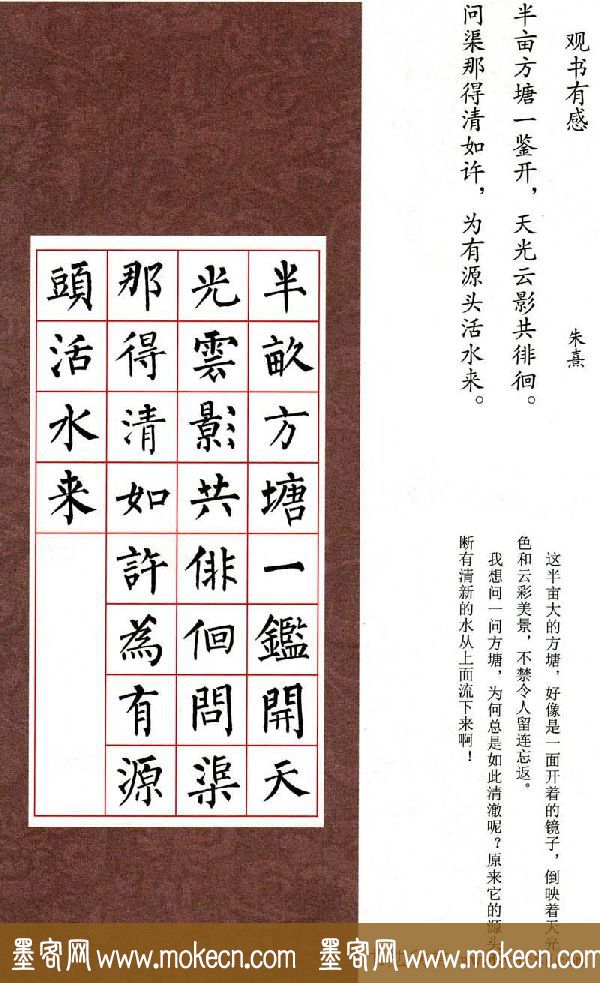 观书有感
朱熹
半亩方塘一鉴开，天光云影共徘徊。
问渠那得清如许，为有源头活水来。
这半亩大的方塘，好像是一面开着的镜子，倒映着天光
色和云彩美景，不禁令人留连忘返。
我想问一问方塘，为何总是如此清澈呢？原来它的源头
断有清新的水从上面流下来啊！
半畝方塘一鑑開天
光雲影共徘徊問渠
那得清如許為有源
頭活水来
墨客网 www.mokecn.com 墨客网 www.mokecn.com